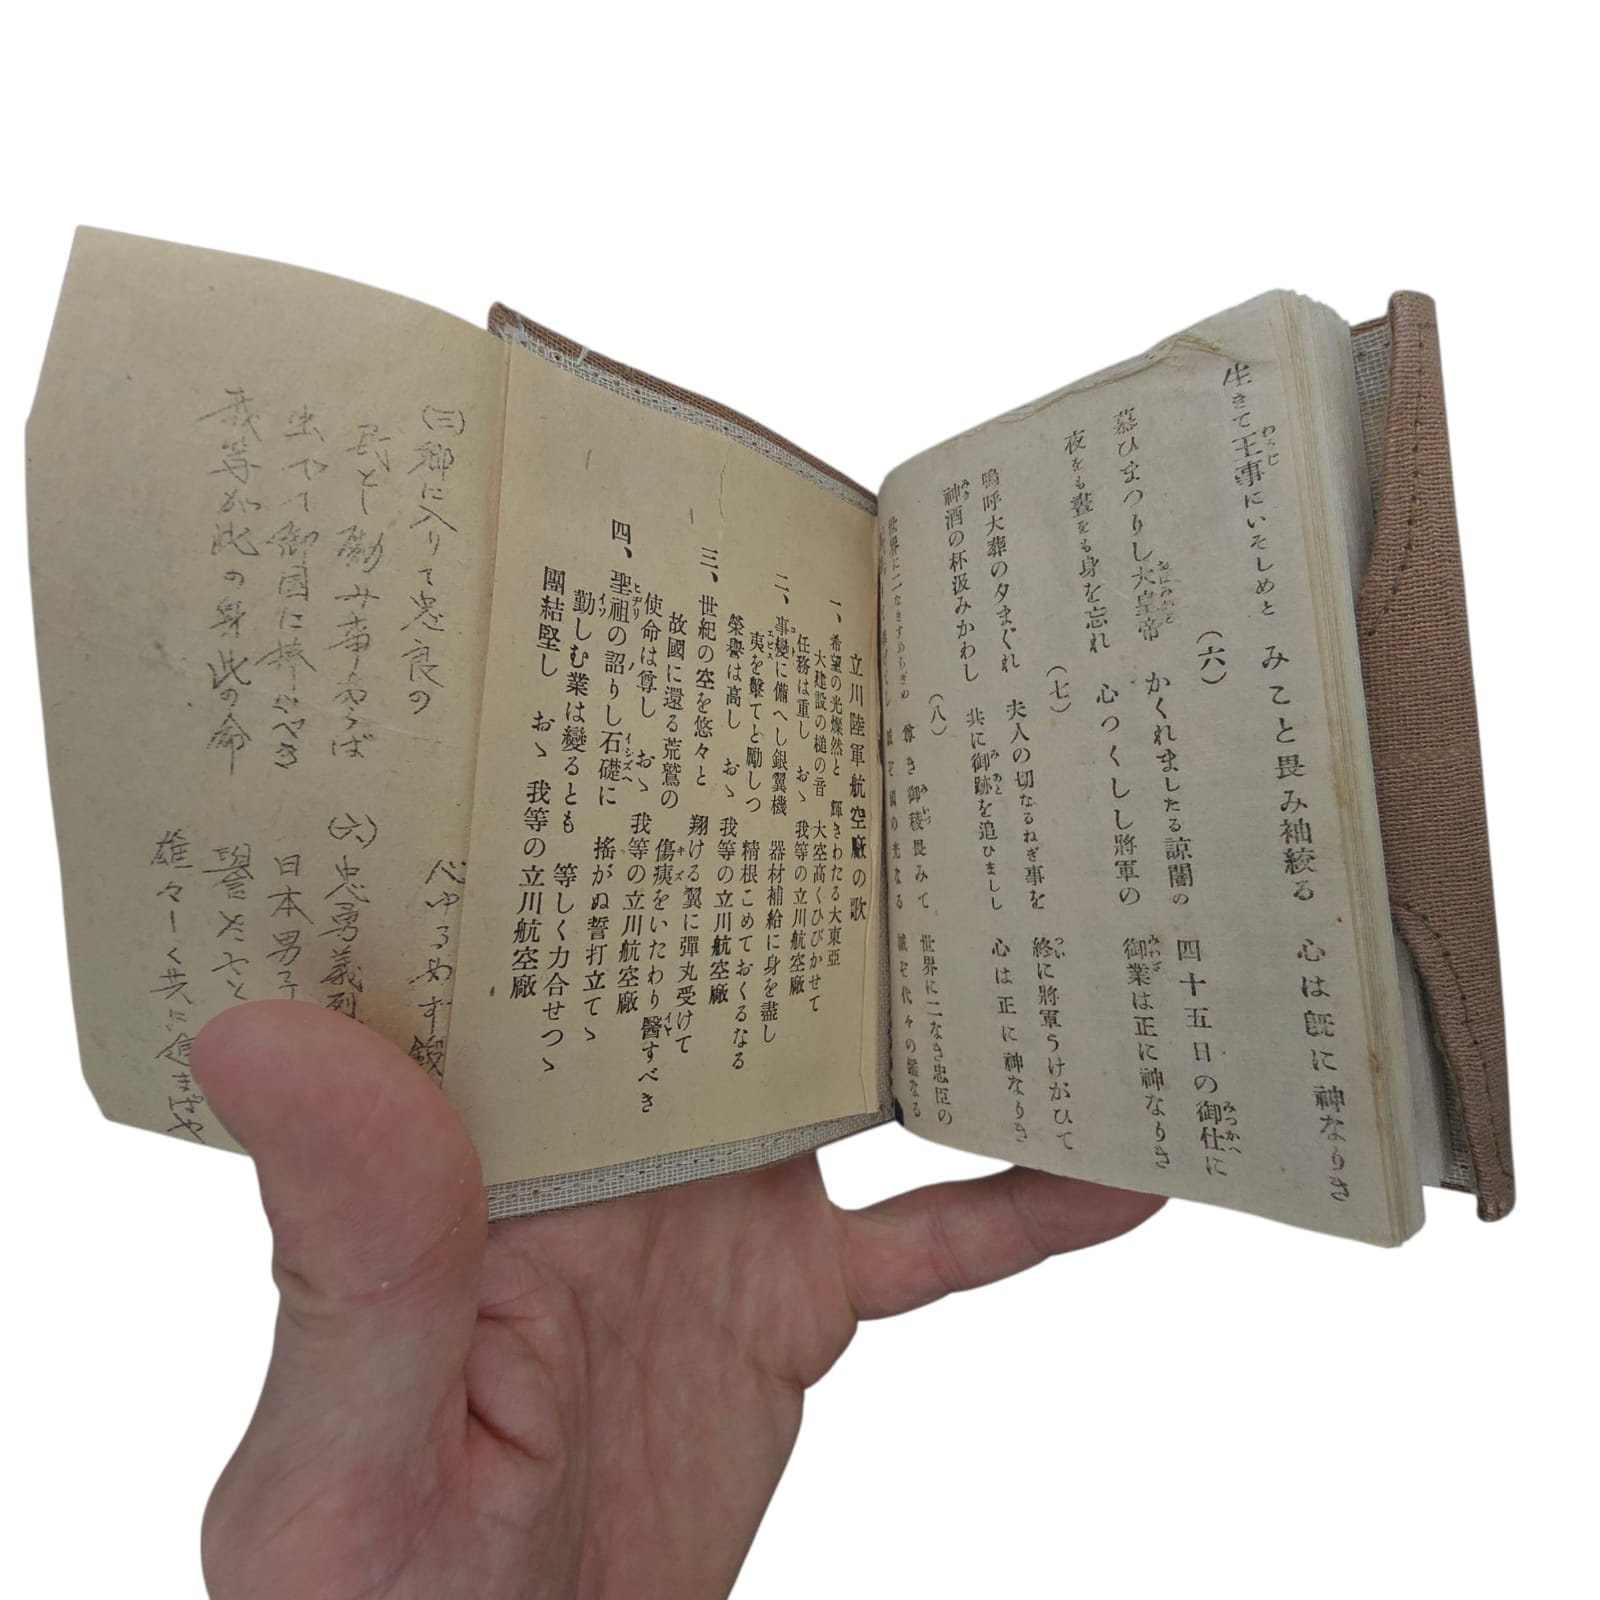 生きて王事にいそしめと みこと畏み袖絞る 心は既に神なりき
(六)
慕ひまつりし大皇帝 かくれましたる諒闇の 四十五日の御仕に
夜をも晝をも身を忘れ 心つくしし將軍の 御業は正に神なりき
(七)
嗚呼大葬の夕まぐれ 夫人の切なるねぎ事を 終に將軍うけがひて
神酒の杯汲みかわし 共に御跡を追ひまし 心は正に神なりき
(八)
世界に二なきすめらぎの 尊き御稜畏みて 世界に二なき忠臣の
國の光なる 誠ぞ代々の鑑なる
立川陸軍航空廠の歌
一、希望の光燦然と 輝きわたる大東亞
大建設の槌の音 大空高くひびかせて
任務は重し おゝ 我等の立川航空廠
二、事變に備へし銀翼機 器材補給に身を盡し
夷を擊てと勵しつ 精根こめておくるなる
榮譽は高し おゝ 我等の立川航空廠
三、世紀の空を悠々と 翔ける翼に彈丸受けて
故國に還る荒鷲の 傷痍をいたわり醫すべき
使命は尊し おゝ 我等の立川航空廠
四、聖祖の詔りし石礎に 搖がぬ誓打立てゝ
勤しむ業は變るとも 等しく力合せつゝ
團結堅し おゝ 我等の立川航空廠
(三)郷に入りて忠良の 心ゆるめず鍛
民とし勵み事あらば
出でて御國に捧ぐべき
我等が此の身此の命
(六)忠勇義烈
日本男子
譽れ
雄々しく共に進まばや